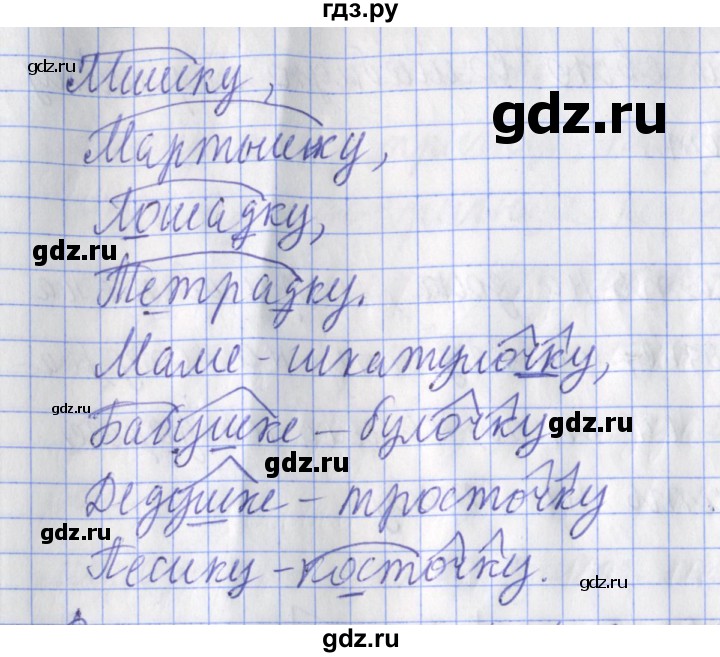 гдз.ру
gdz.ru
Мишку,
gdz.ru
Мартышку,
Лошадку,
gdz.ru
Тетрадку.
Маме - шкатулочку,
gdz.ru
Бабушке - булочку
gdz.ru
gdz.ru
Дедушке - тросточку
gdz.ru
Песику - косточку.
gdz.ru
gdz.ru